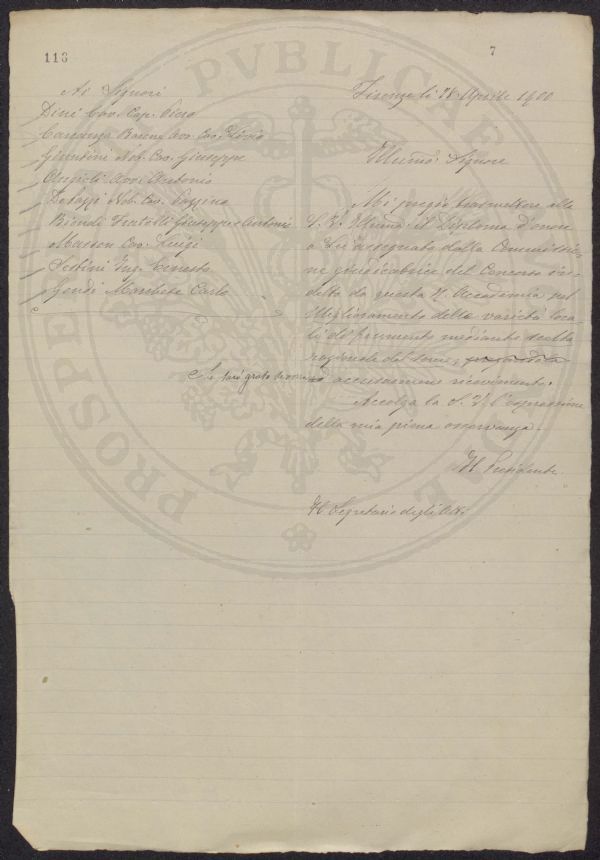 118
7
Ai Signori
Dini Cav. Cap. Piero
Carranza Barone Avv. Cav. Flòrio
Giuntini Nob. Cav. Giuseppe
Angioli Avv. Antonio
De Pazzi Nob. Cav. Pazzino
Biondi Fratelli Giuseppe e Antonio
Masson Cav. Luigi
Sestini Ing. Ernesto
Gondi Marchese Carlo
Firenze li 28 Aprile 1900
Illumo Signore
Mi pregio trasmettere alla
S. V. Illuma il Diploma d'onore
a Lei assegnato dalla Commissio-
ne giudicatrice del Concorso in-
detto da questa R. Accademia pel
Miglioramento delle varietà loca-
li di frumento mediante scelta
razionale del seme,
e Le sarò grato di accusarmene ricevimento.
Accolga la S. V. l'espressione
della mia piena osservanza.
Il Presidente
Il Segretario degli Atti
PROSPE PVBLICAE